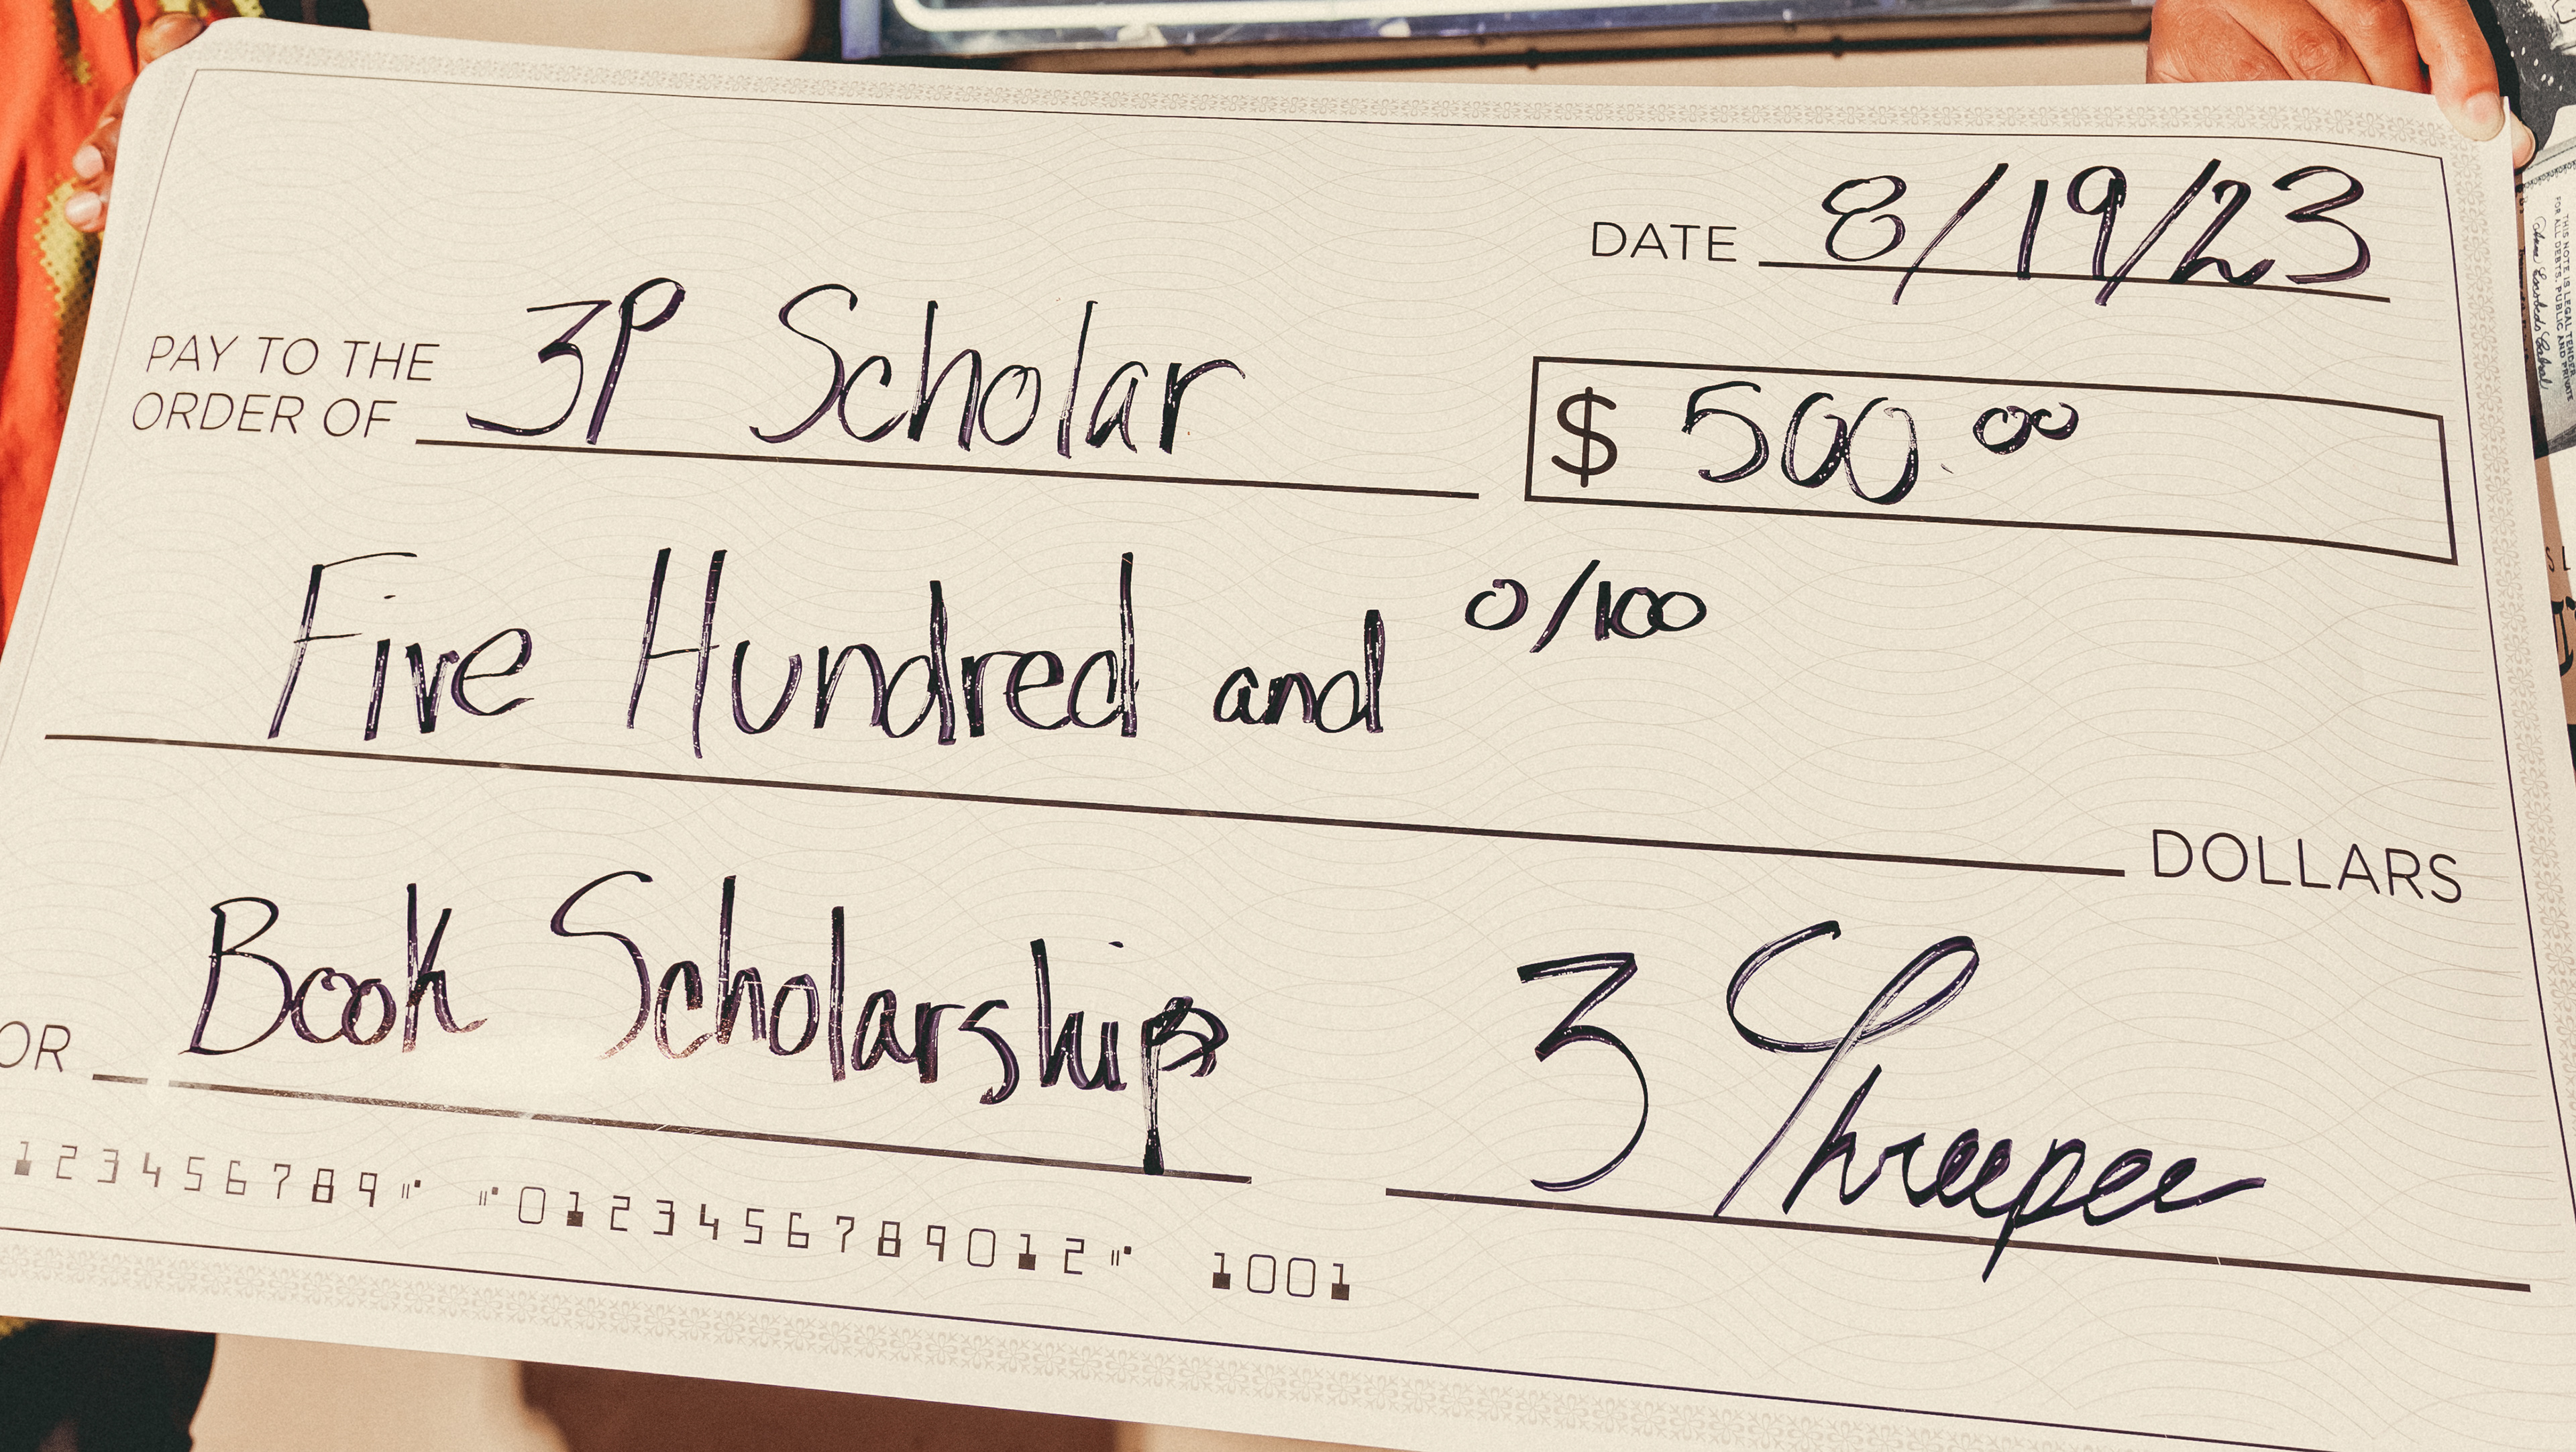 DATE 8/19/23
PAY TO THE
ORDER OF 3P Scholar
$ 500.00
Five Hundred and 0/100
DOLLARS
OR Book Scholarship
3 Threepee
123456789⑈ ⑈0123456789012⑈ 1001
THIS NOTE IS LEGAL TENDER
FOR ALL DEBTS, PUBLIC AND PRIVATE